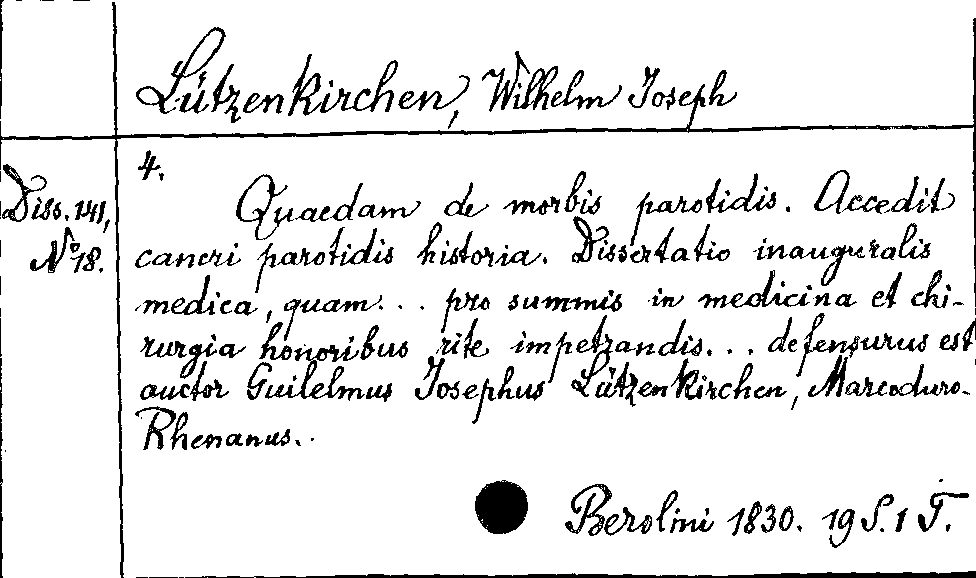 Lützenkirchen, Wilhelm Joseph
4.
Diss. 141,
No 18.
Quaedam de morbis parotidis. Accedit
cancri parotidis historia. Dissertatio inauguralis
medica, quam... pro summis in medicina et chi-
rurgia honoribus rite impetrandis... defensurus est
auctor Guilelmus Josephus Lützenkirchen, Marcoduro-
Rhenanus..
Berolini 1830. 19 S. 1 T.